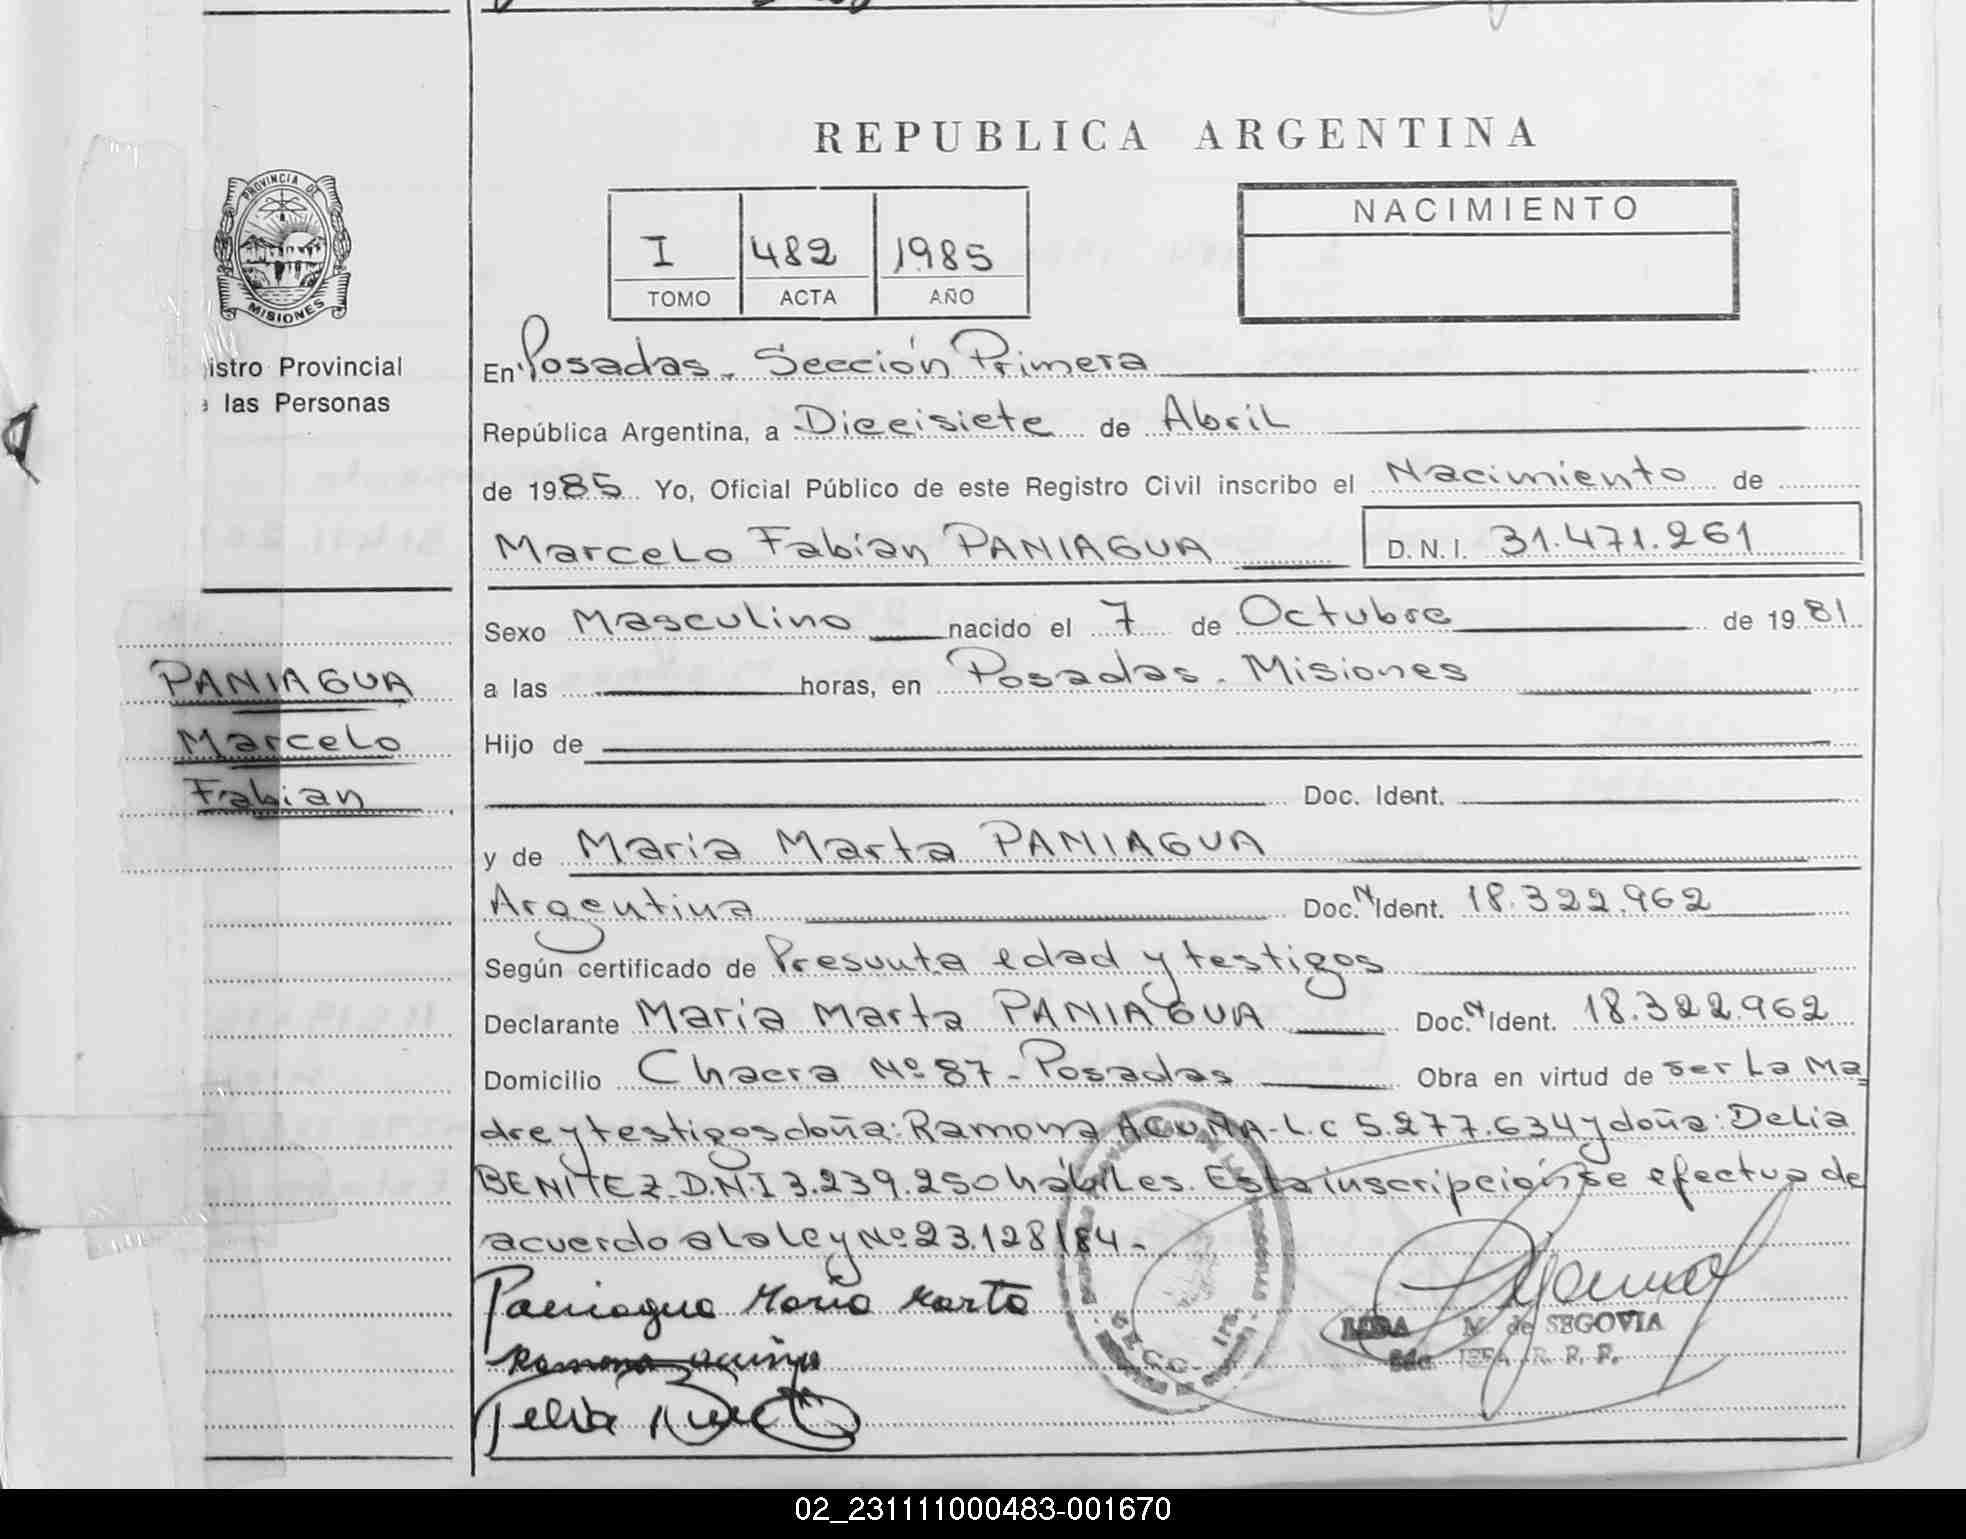 REPUBLICA ARGENTINA
PROVINCIA DE
MISIONES
I 482 1985
TOMO ACTA AÑO
NACIMIENTO
istro Provincial
las Personas
En Posadas. Sección Primera
República Argentina, a Diecisiete de Abril
de 1985 Yo, Oficial Público de este Registro Civil inscribo el Nacimiento de
Marcelo Fabian PANIAGUA D.N.I. 31.471.261
Sexo Masculino nacido el 7 de Octubre de 1981
PANIAGUA
Marcelo
Fabian
a las horas, en Posadas. Misiones
Hijo de
Doc. Ident.
y de Maria Marta PANIAGUA
Argentina Doc. N Ident. 18.322.962
Según certificado de Presunta edad y testigos
Declarante Maria Marta PANIAGUA Doc. N Ident. 18.322.962
Domicilio Chacra Nº 87 - Posadas Obra en virtud de ser La Ma
dre y testigos doña: Ramona ACUÑA - L.C 5.277.634 y doña: Delia
BENITEZ. D.N.I 3.239.250 hábiles. Esta inscripción se efectua de
acuerdo a la ley Nº 23.128/84.
Paniagua Maria Marta
Ramona
M. de SEGOVIA
R. P. P.
SECC. 1ra.
02_231111000483-001670